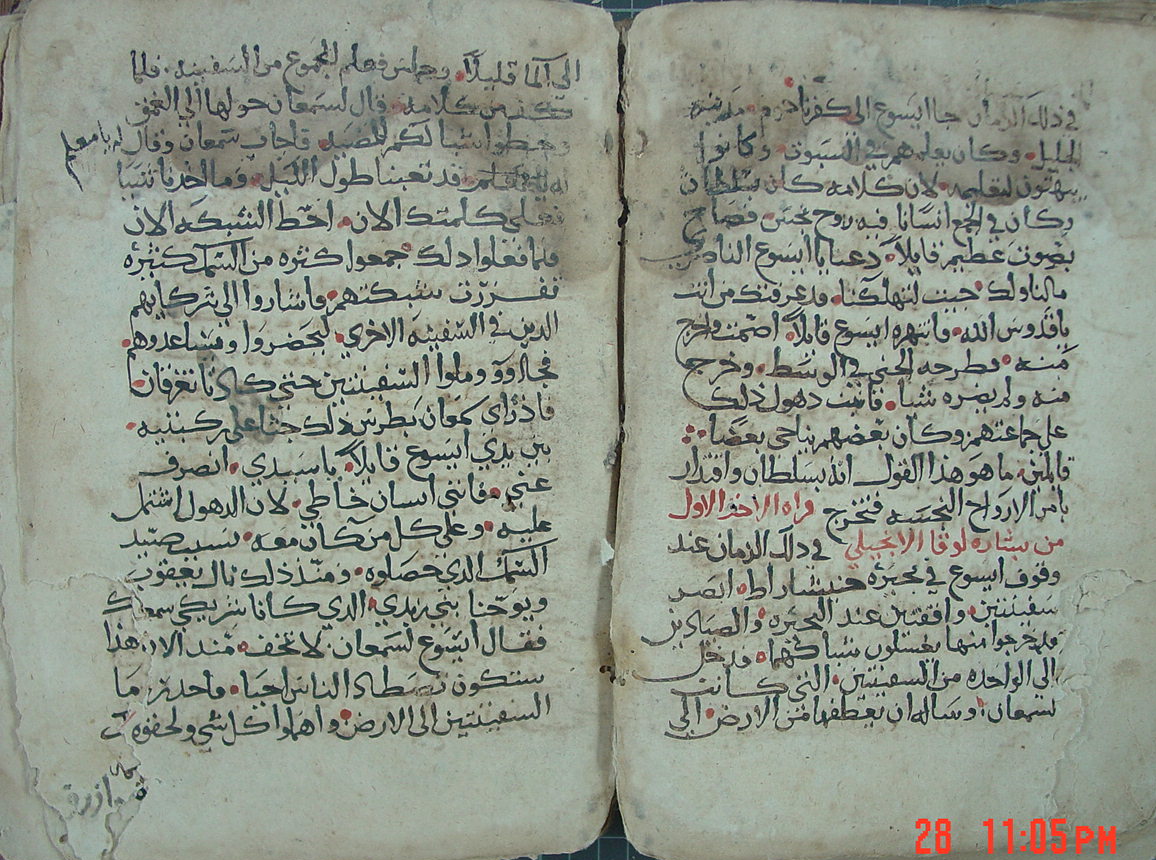 في ذلك الزمان جا ايسوع الى كفرناحوم مدينه
الجليل وكان يعلمهم في السبوت وكانوا
يبهتون لتعليمه لان كلامه كان بسلطان
وكان في المجمع انسانا فيه روح نجس فصاح
بصوت عظيم قايلاً دعنا يا ايسوع الناصري
مالنا ولك جيت لتهلكنا قد عرفتك من انت
يا قدوس الله فانتهره ايسوع قايلاً اصمت واخرج
منه فطرحه الجني في الوسط وخرج
منه ولم يضره شيا فانبت دهول ذلك
على جماعتهم وكان بعضهم يناجي بعضا
قايلين ما هو هذا القول انه بسلطان واقتدار
يامر الارواح النجسه فتخرج قراه الاحد الاول
من بشاره لوقا الانجيلي في ذلك الزمان عند
وقوف ايسوع في بحيرة جنيشاراط ابصر
سفينتين واقفتين عند البحيره والصيادين
قد خرجوا منها يغسلون شباكهما فدخل
الى الواحده من السفينتين التي كانت
لسمعان وساله ان يعطفها من الارض الى
الى الما قليلاً وجلس فعلم الجموع من السفينه فلما
من كلامه قال لسمعان حولها الى العمق
وحطوا شباككم للصيد فاجاب سمعان وقال له يا معلم
قد تعبنا طول الليل وما اخدنا شيا
فعلى كلمتك الان احط الشبكه الان
فلما فعلوا ذلك جمعوا كثره من السمك كثيرة
تفزرت شبكتهم فاشاروا الى شركايهم
الدين في السفينه الاخرى ليحضروا ويساعدوهم
فجاوو وملوا السفينتين حتى كادتا تغرقان
فاذ راى سمعان بطرس ذلك جثا على ركبتيه
بين يدي ايسوع قايلاً يا سيدي انصرف
عني فانني انسان خاطي لان الدهول اشتمل
عليه وعلى كل من كان معه بسبب صيد
السمك الدي حصلوه ومثل ذلك نال يعقوب
ويوحنا بني زبدي الدي كانا شريكي سمعان
فقال ايسوع لسمعان لا تخف مند الان هذا
ستكون تصطاد الناس احيا
السفينتين الى الارض واهملوا كل شي ولحقوه
28 11:05 PM